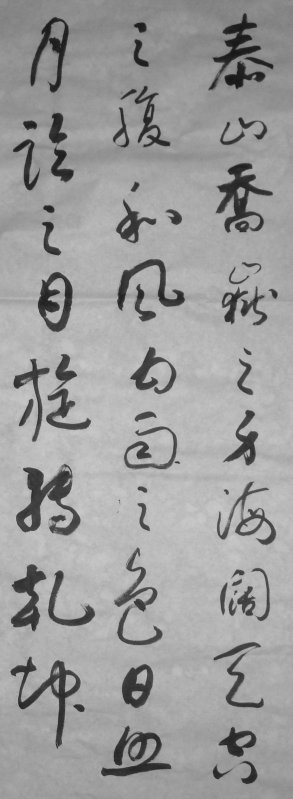 泰山喬嶽之身海闊天空
之腹和風甘雨之色日照
月臨之目旋轉乾坤